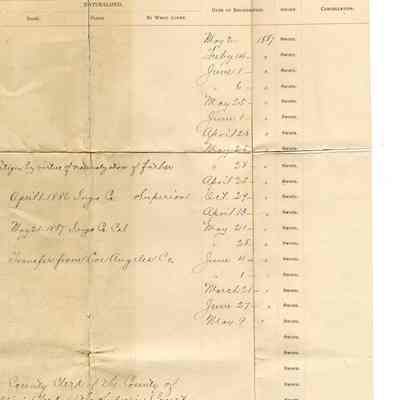 NATURALIZED.
DATE. PLACE. BY WHAT COURT. DATE OF REGISTRATION. SWORN. CANCELLATION.
May 2 - 1887 SWORN.
Feby 14 - " SWORN.
June 1 - " SWORN.
" 6 - " SWORN.
May 25 - " SWORN.
June 1 - " SWORN.
April 23 " SWORN.
May 25 - " SWORN.
by virtue of naturalization of father " 28 - " SWORN.
April 25 - " SWORN.
April 1 1886 Inyo Co Superior Oct. 29 - " SWORN.
April 18 - " SWORN.
May 21 - 1887 Inyo Co Cal May 21 - " SWORN.
" 28 - " SWORN.
Transfer from Los Angeles Co June 11 - " SWORN.
" 1 - " SWORN.
March 21 - " SWORN.
June 27 - " SWORN.
May 9 - " SWORN.
SWORN.
SWORN.
SWORN.
County Clerk of the County of SWORN.
Superior Court SWORN.